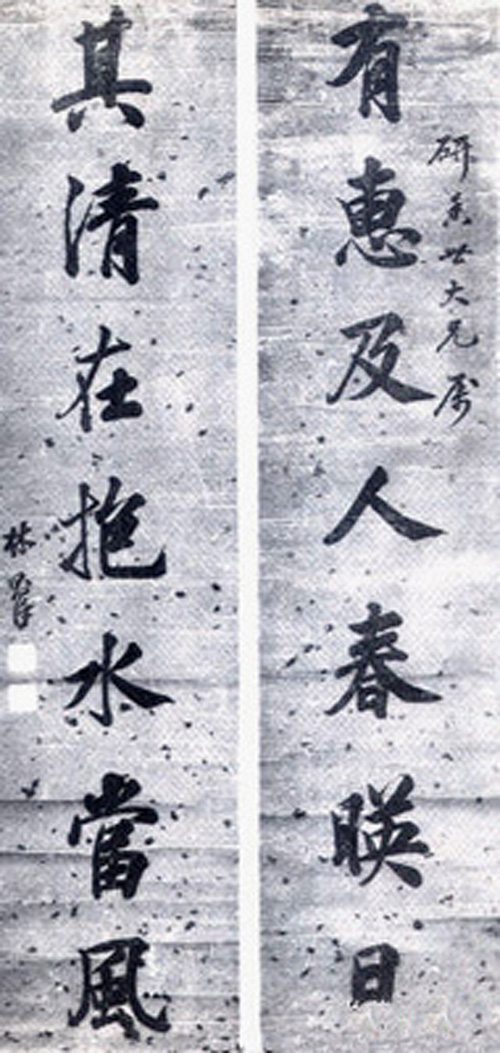 有惠及人春暎日
研世大兄属
其清在抱水當風
林